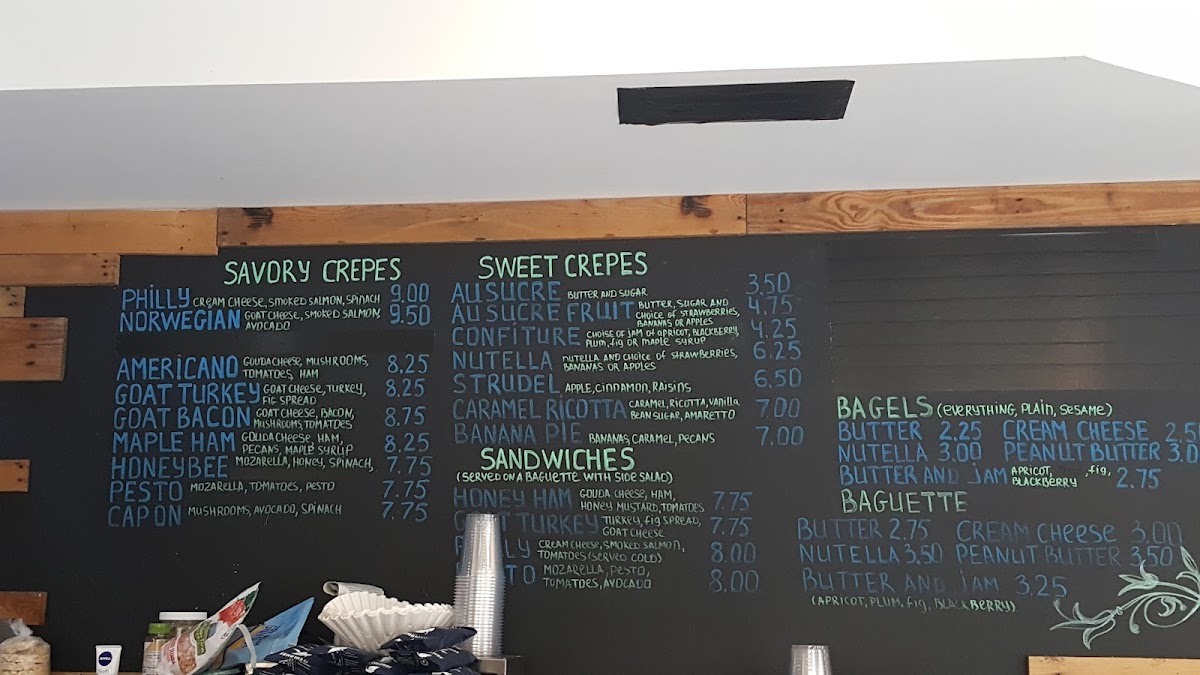 SAVORY CREPES
PHILLY CREAM CHEESE, SMOKED SALMON, SPINACH 9.00
NORWEGIAN GOAT CHEESE, SMOKED SALMON, 9.50
AVOCADO
AMERICANO GOUDA CHEESE, MUSHROOMS, 8.25
TOMATOES, HAM
GOAT TURKEY GOAT CHEESE, TURKEY, 8.25
FIG SPREAD
GOAT BACON GOAT CHEESE, BACON, 8.75
MUSHROOMS, TOMATOES
MAPLE HAM GOUDA CHEESE, HAM, 8.25
PECANS, MAPLE SYRUP
HONEYBEE MOZARELLA, HONEY, SPINACH, 7.75
PESTO MOZARELLA, TOMATOES, PESTO 7.75
CAPON MUSHROOMS, AVOCADO, SPINACH 7.75
SWEET CREPES
AU SUCRE BUTTER AND SUGAR 3.50
AU SUCRE FRUIT BUTTER, SUGAR AND 4.75
CHOICE OF STRAWBERRIES,
BANANAS OR APPLES
CONFITURE CHOISE OF JAM OF APRICOT, BLACKBERRY, 4.25
PLUM, FIG OR MAPLE SYRUP
NUTELLA NUTELLA AND CHOICE OF STRAWBERRIES, 6.25
BANANAS OR APPLES
STRUDEL APPLE, CINNAMON, RAISINS 6.50
CARAMEL RICOTTA CARAMEL, RICOTTA, VANILLA 7.00
BEAN SUGAR, AMARETTO
BANANA PIE BANANAS, CARAMEL, PECANS 7.00
SANDWICHES
(SERVED ON A BAGUETTE WITH SIDE SALAD)
HONEY HAM GOUDA CHEESE, HAM, 7.75
HONEY MUSTARD, TOMATOES
TURKEY TURKEY, FIG SPREAD, 7.75
GOAT CHEESE
CREAM CHEESE, SMOKED SALMON, 8.00
TOMATOES (SERVED COLD)
MOZARELLA, PESTO, 8.00
TOMATOES, AVOCADO
BAGELS (EVERYTHING, PLAIN, SESAME)
BUTTER 2.25 CREAM CHEESE 2.5
NUTELLA 3.00 PEANUT BUTTER 3.0
BUTTER AND JAM APRICOT, , FIG, 2.75
BLACKBERRY
BAGUETTE
BUTTER 2.75 CREAM CHEESE 3.00
NUTELLA 3.50 PEANUT BUTTER 3.50
BUTTER AND JAM 3.25
(APRICOT, PLUM, FIG, BLACKBERRY)
NIVEA